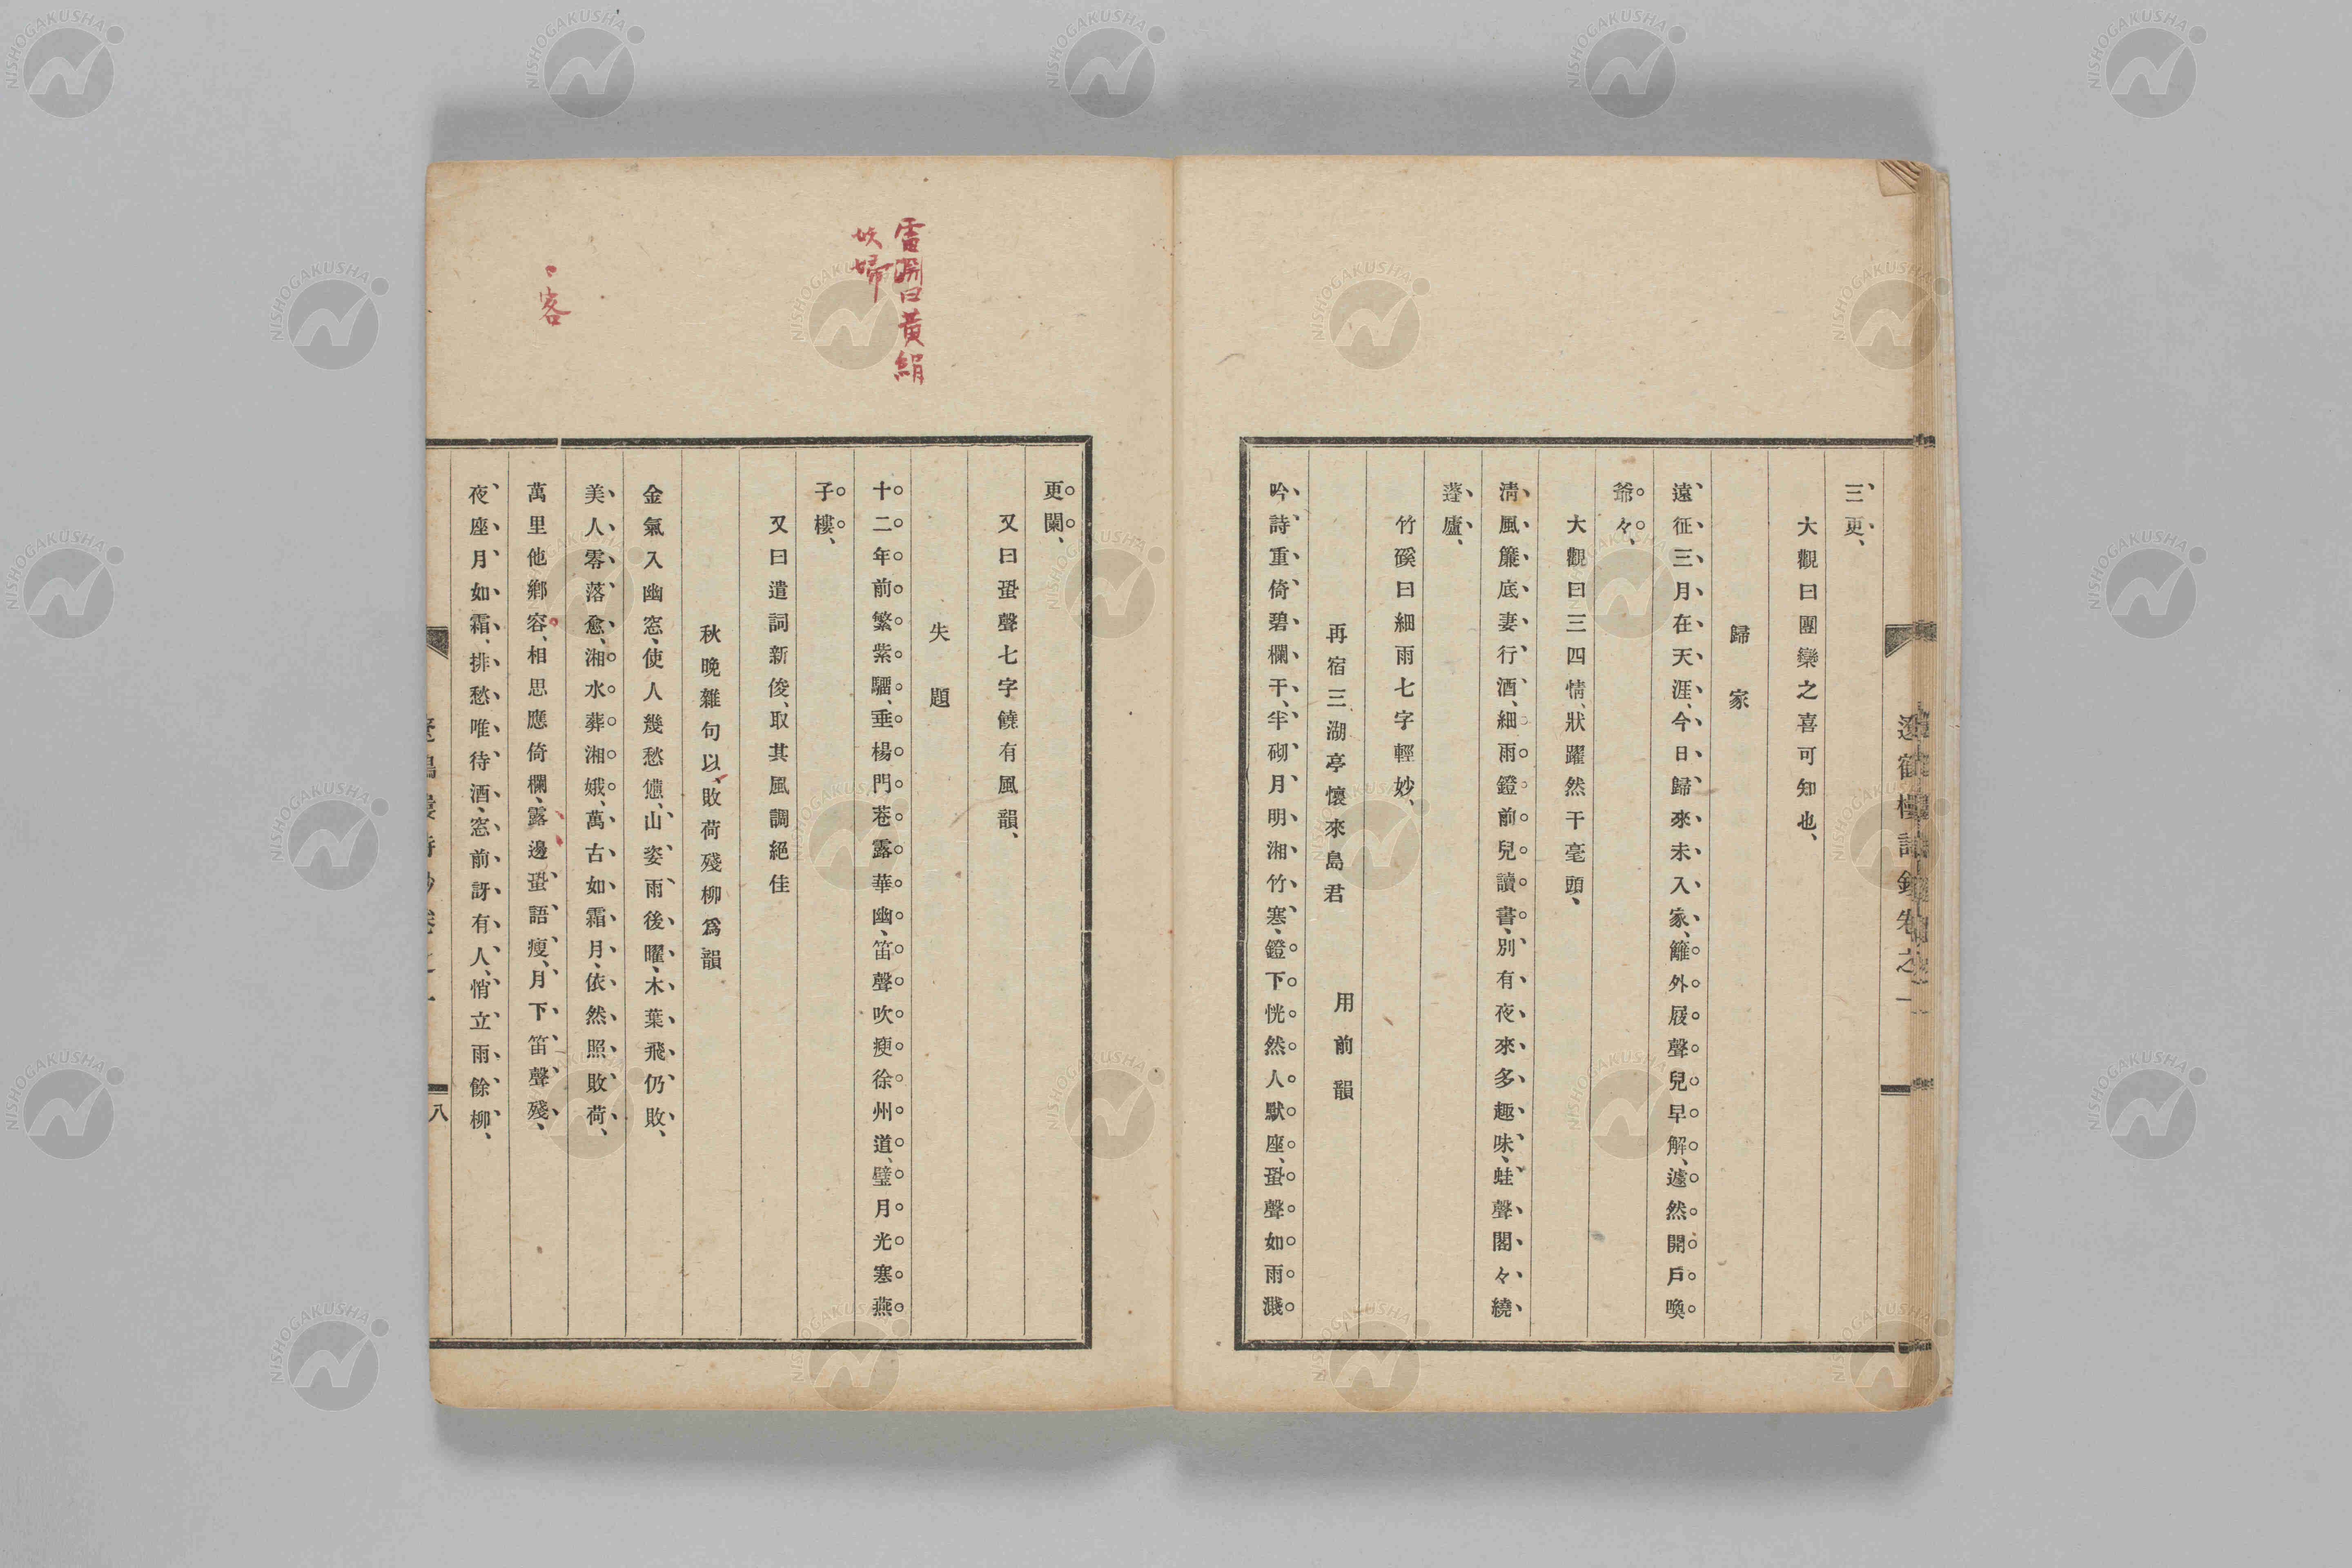 三更、
大觀曰團欒之喜可知也、
歸家
遠征三月在天涯、今日歸來未入家、籬外屐聲兒早解、遽然開戶喚
爺々、
大觀曰三四情、狀躍然干毫頭、
淸風簾底妻行酒、細雨鐙前兒讀書、別有夜來多趣味、蛙聲閣々繞
蓬廬、
竹磎曰細雨七字輕妙、
再宿三湖亭懷來島君 用前韻
吟詩重倚碧欄干、半砌月明湘竹寒、鐙下恍然人默座、蛩聲如雨濺
更闌、
又曰蛩聲七字饒有風韻、
失題
十二年前繁紫騮、垂楊門巷露華幽、笛聲吹瘐徐州道、璧月光寒燕
子樓、
又曰遣詞新俊、取其風調絕佳
秋晩雜句以、敗荷殘柳爲韻
金氣入幽窓、使人幾愁憊、山姿雨後曜、木葉飛仍敗、
美人零落愈、湘水葬湘娥、萬古如霜月、依然照敗荷、
萬里他鄕容、相思應倚欄、露邊蛩語瘦、月下笛聲殘、
夜座月如霜、排愁唯待酒、窓前訝有人、悄立雨餘柳、
八
雷淵曰黃絹
妖婦
客
NISHOGAKUSHA